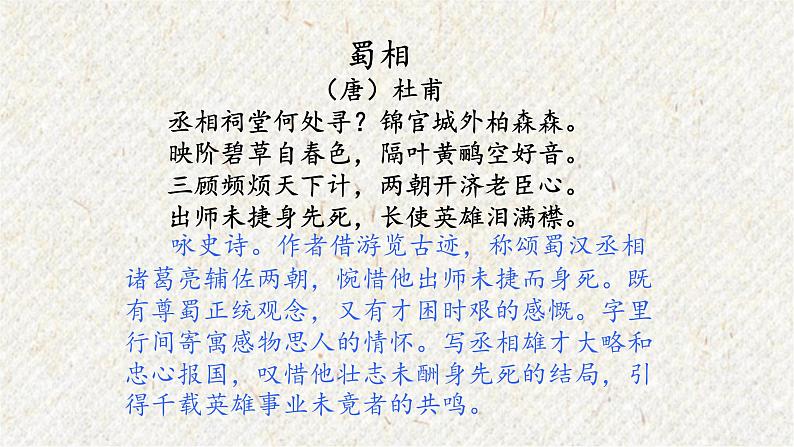 蜀相
（唐）杜甫
丞相祠堂何处寻？锦官城外柏森森。
映阶碧草自春色，隔叶黄鹂空好音。
三顾频烦天下计，两朝开济老臣心。
出师未捷身先死，长使英雄泪满襟。
咏史诗。作者借游览古迹，称颂蜀汉丞相
诸葛亮辅佐两朝，惋惜他出师未捷而身死。既
有尊蜀正统观念，又有才困时艰的感慨。字里
行间寄寓感物思人的情怀。写丞相雄才大略和
忠心报国，叹惜他壮志未酬身先死的结局，引
得千载英雄事业未竟者的共鸣。